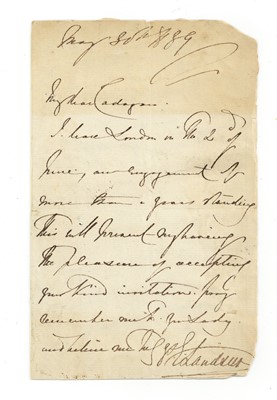 May 30th 1839
My dear Cadogan
I leave London on the 2d of
June, an engagement of
more than a years standing
This will prevent my having
the pleasure of accepting
your kind invitation. pray
remember me to yr Lady
and believe me
E Landseer